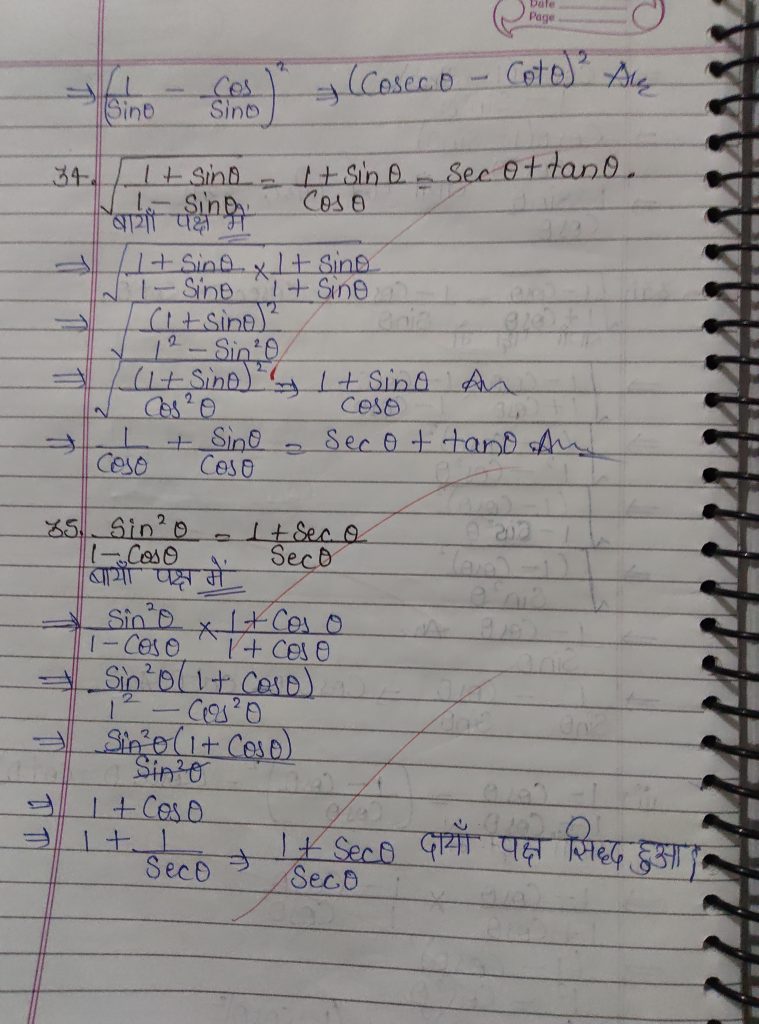 Date
Page
⇒ (1/Sinθ - Cos/Sinθ)² ⇒ (Cosecθ - Cotθ)² Ans
34. √(1 + Sinθ/1 - Sinθ) = 1 + Sinθ/Cosθ = Secθ + tanθ.
बायाँ पक्ष में
⇒ √(1 + Sinθ/1 - Sinθ × 1 + Sinθ/1 + Sinθ)
⇒ √((1 + Sinθ)²/1² - Sin²θ)
⇒ √((1 + Sinθ)²/Cos²θ) ⇒ 1 + Sinθ/Cosθ An
⇒ 1/Cosθ + Sinθ/Cosθ = Secθ + tanθ An
35. Sin²θ/1 - Cosθ = 1 + Secθ/Secθ
बायाँ पक्ष में
⇒ Sin²θ/1 - Cosθ × 1 + Cosθ/1 + Cosθ
⇒ Sin²θ(1 + Cosθ)/1² - Cos²θ
⇒ Sin²θ(1 + Cosθ)/Sin²θ
⇒ 1 + Cosθ
⇒ 1 + 1/Secθ ⇒ 1 + Secθ/Secθ दायाँ पक्ष सिद्ध हुआ।